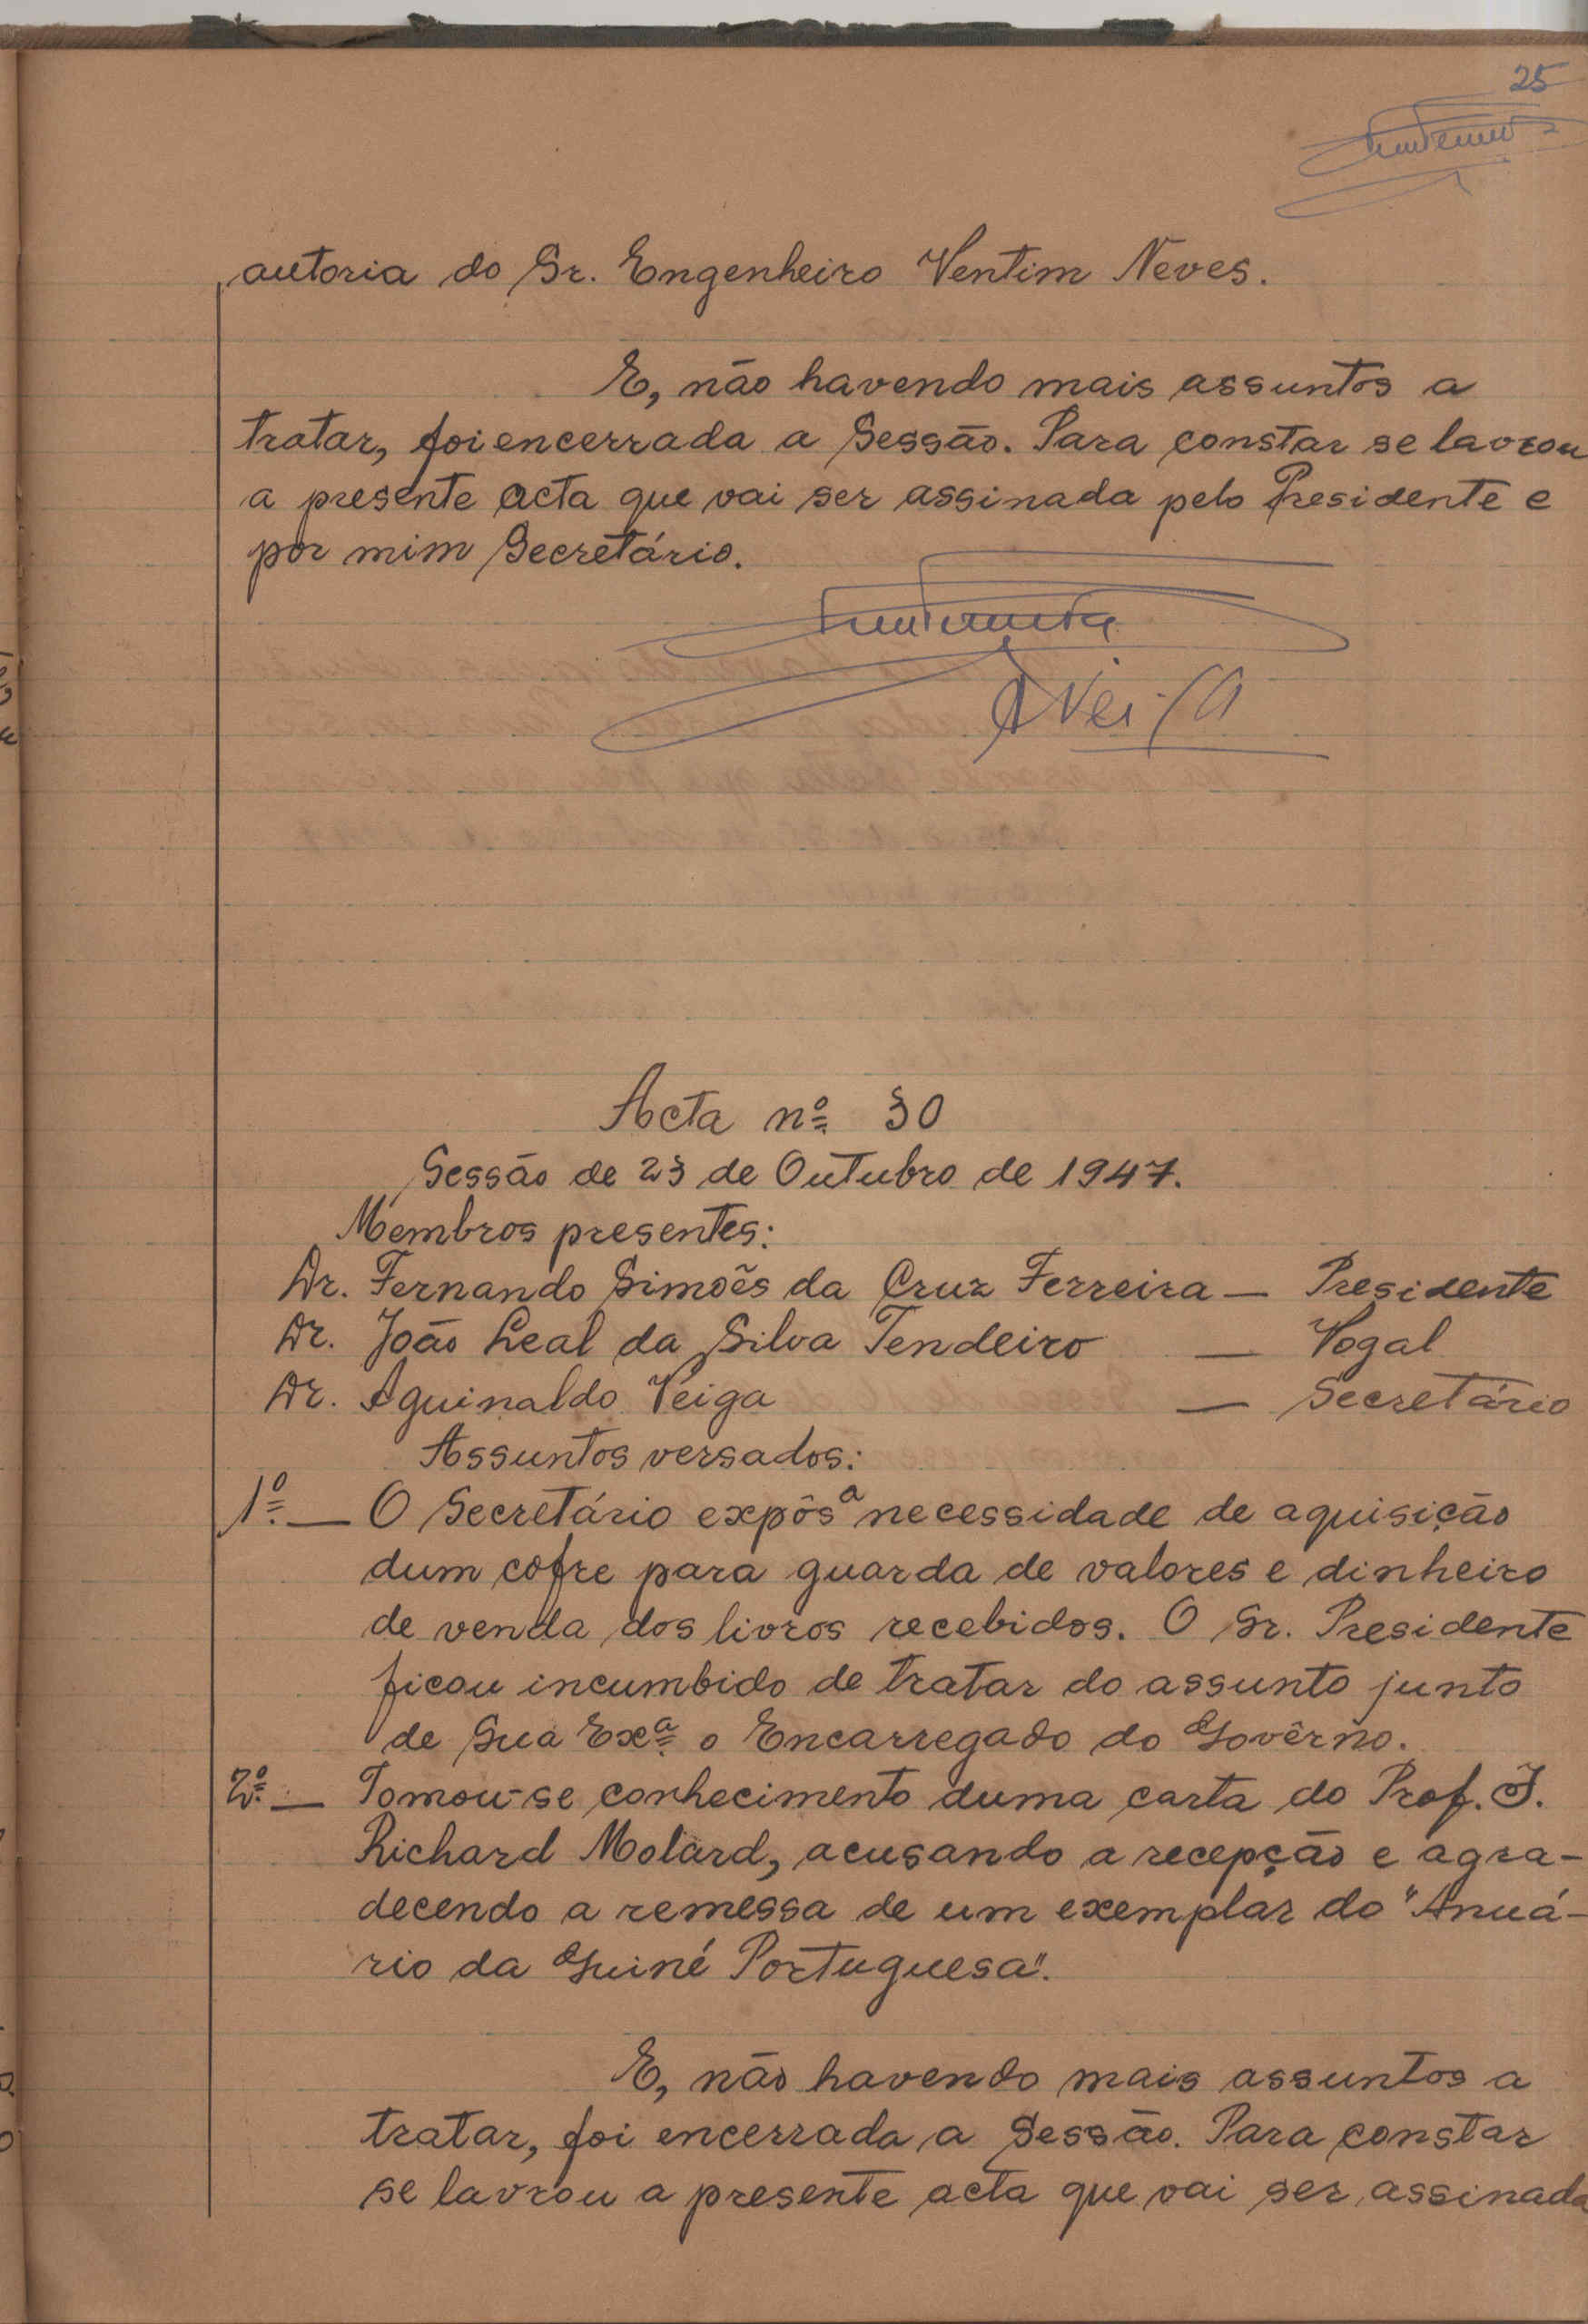 25
autoria do Sr. Engenheiro Ventim Neves.
E, não havendo mais assuntos a
tratar, foi encerrada a Sessão. Para constar se lavrou
a presente acta que vai ser assinada pelo Presidente e
por mim Secretário.
AVeiga
Acta nº 30
Sessão de 23 de Outubro de 1947.
Membros presentes:
Dr. Fernando Simões da Cruz Ferreira — Presidente
Dr. João Leal da Silva Tendeiro — Vogal
Dr. Aguinaldo Veiga — Secretário
Assuntos versados:
1º — O Secretário expôs a necessidade de aquisição
dum cofre para guarda de valores e dinheiro
de venda dos livros recebidos. O Sr. Presidente
ficou incumbido de tratar do assunto junto
de Sua Exª o Encarregado do Govêrno.
2º — Tomou-se conhecimento duma carta do Prof. J.
Richard Molard, acusando a recepção e agra-
decendo a remessa de um exemplar do "Anuá-
rio da Guiné Portuguesa".
E, não havendo mais assuntos a
tratar, foi encerrada a Sessão. Para constar
se lavrou a presente acta que vai ser assinada